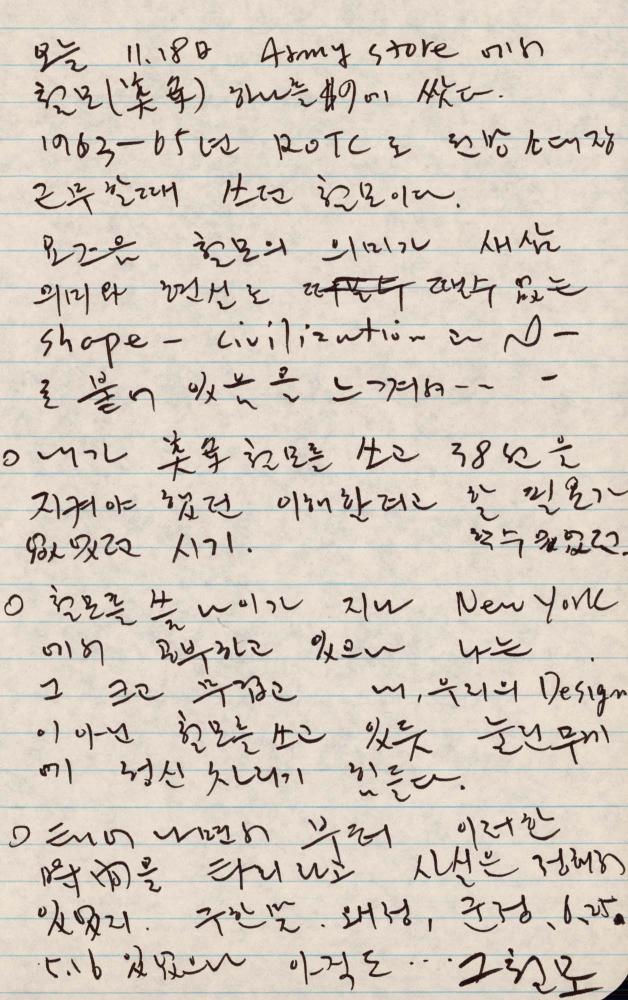 오늘 11.18日 Army store 에서
철모(美軍) 하나를 $9에 샀다.
1963-65년 ROTC로 전방소대장
근무할때 쓰던 철모이다.
요즈음 철모의 의미가 새삼
의미와 현실로 뗄수 없는
shape - civilization 과
로 붙어 있음을 느껴서 -- -
○ 내가 美軍철모를 쓰고 38선을
지켜야 했던 이해할려고 할 필요가
없었던 시기. 할수 없었던.
○ 철모를 쓸 나이가 지나 New York
에서 공부하고 있으나 나는
그 크고 무겁고 내, 우리의 Design
이 아닌 철모를 쓰고 있듯 눌린 무게
에 정신 차리기 힘들다.
○ 태어 나면서 부터 이러한
時間을 타고 나고 사실은 정해져
있었지. 구한말. 왜정, 군정, 6.25.
5.16 있었으나 아직도 … 그철모